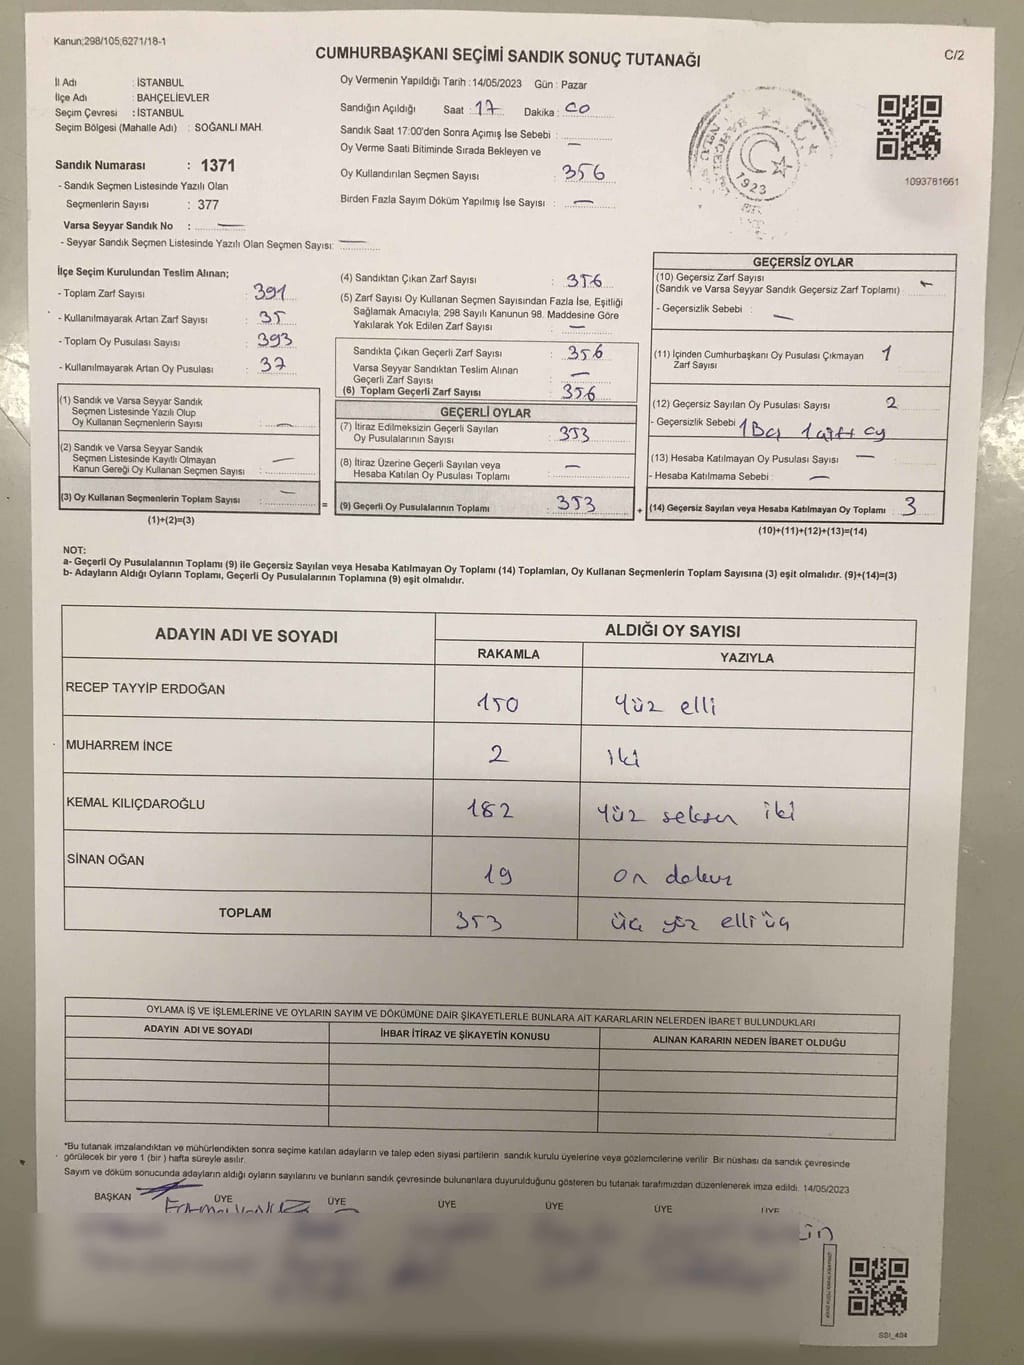 Kanun;298/105;6271/18-1
CUMHURBAŞKANI SEÇİMİ SANDIK SONUÇ TUTANAĞI
C/2
İl Adı : İSTANBUL
İlçe Adı : BAHÇELİEVLER
Seçim Çevresi : İSTANBUL
Seçim Bölgesi (Mahalle Adı) : SOĞANLI MAH.
Sandık Numarası : 1371
- Sandık Seçmen Listesinde Yazılı Olan
Seçmenlerin Sayısı : 377
Varsa Seyyar Sandık No : —
- Seyyar Sandık Seçmen Listesinde Yazılı Olan Seçmen Sayısı: —
Oy Vermenin Yapıldığı Tarih : 14/05/2023 Gün : Pazar
Sandığın Açıldığı Saat : 17 Dakika : 00
Sandık Saat 17:00'den Sonra Açımış İse Sebebi :
Oy Verme Saati Bitiminde Sırada Bekleyen ve —
Oy Kullandırılan Seçmen Sayısı : 356
Birden Fazla Sayım Döküm Yapılmış İse Sayısı : —
1923
1093761661
İlçe Seçim Kurulundan Teslim Alınan;
- Toplam Zarf Sayısı : 391
- Kullanılmayarak Artan Zarf Sayısı : 35
- Toplam Oy Pusulası Sayısı : 393
- Kullanılmayarak Artan Oy Pusulası : 37
(1) Sandık ve Varsa Seyyar Sandık
Seçmen Listesinde Yazılı Olup
Oy Kullanan Seçmenlerin Sayısı : —
(2) Sandık ve Varsa Seyyar Sandık
Seçmen Listesinde Kayıtlı Olmayan —
Kanun Gereği Oy Kullanan Seçmen Sayısı :
(3) Oy Kullanan Seçmenlerin Toplam Sayısı : —
(1)+(2)=(3)
=
(4) Sandıktan Çıkan Zarf Sayısı : 356
(5) Zarf Sayısı Oy Kullanan Seçmen Sayısından Fazla İse, Eşitliği
Sağlamak Amacıyla; 298 Sayılı Kanunun 98. Maddesine Göre
Yakılarak Yok Edilen Zarf Sayısı : —
Sandıkta Çıkan Geçerli Zarf Sayısı : 356
Varsa Seyyar Sandıktan Teslim Alınan
Geçerli Zarf Sayısı : —
(6) Toplam Geçerli Zarf Sayısı : 356
GEÇERLİ OYLAR
(7) İtiraz Edilmeksizin Geçerli Sayılan
Oy Pusulalarının Sayısı : 353
(8) İtiraz Üzerine Geçerli Sayılan veya
Hesaba Katılan Oy Pusulası Toplamı : —
(9) Geçerli Oy Pusulalarının Toplamı : 353
+
GEÇERSİZ OYLAR
(10) Geçersiz Zarf Sayısı
(Sandık ve Varsa Seyyar Sandık Geçersiz Zarf Toplamı) : —
- Geçersizlik Sebebi : —
(11) İçinden Cumhurbaşkanı Oy Pusulası Çıkmayan 1
Zarf Sayısı
(12) Geçersiz Sayılan Oy Pusulası Sayısı 2
- Geçersizlik Sebebi 1 Boş 1 çift oy
(13) Hesaba Katılmayan Oy Pusulası Sayısı : —
- Hesaba Katılmama Sebebi : —
(14) Geçersiz Sayılan veya Hesaba Katılmayan Oy Toplamı : 3
(10)+(11)+(12)+(13)=(14)
NOT:
a- Geçerli Oy Pusulalarının Toplamı (9) ile Geçersiz Sayılan veya Hesaba Katılmayan Oy Toplamı (14) Toplamları, Oy Kullanan Seçmenlerin Toplam Sayısına (3) eşit olmalıdır. (9)+(14)=(3)
b- Adayların Aldığı Oyların Toplamı, Geçerli Oy Pusulalarının Toplamına (9) eşit olmalıdır.
ADAYIN ADI VE SOYADI
ALDIĞI OY SAYISI
RAKAMLA YAZIYLA
RECEP TAYYİP ERDOĞAN 150 Yüz elli
MUHARREM İNCE 2 iki
KEMAL KILIÇDAROĞLU 182 Yüz seksen iki
SİNAN OĞAN 19 on dokuz
TOPLAM 353 üç yüz elli üç
OYLAMA İŞ VE İŞLEMLERİNE VE OYLARIN SAYIM VE DÖKÜMÜNE DAİR ŞİKAYETLERLE BUNLARA AİT KARARLARIN NELERDEN İBARET BULUNDUKLARI
ADAYIN ADI VE SOYADI İHBAR İTİRAZ VE ŞİKAYETİN KONUSU ALINAN KARARIN NEDEN İBARET OLDUĞU
*Bu tutanak imzalandıktan ve mühürlendikten sonra seçime katılan adayların ve talep eden siyasi partilerin sandık kurulu üyelerine veya gözlemcilerine verilir. Bir nüshası da sandık çevresinde
görülecek bir yere 1 (bir) hafta süreyle asılır.
Sayım ve döküm sonucunda adayların aldığı oyların sayılarını ve bunların sandık çevresinde bulunanlara duyurulduğunu gösteren bu tutanak tarafımızdan düzenlenerek imza edildi. 14/05/2023
BAŞKAN ÜYE ÜYE ÜYE ÜYE ÜYE ÜYE
SSI_404